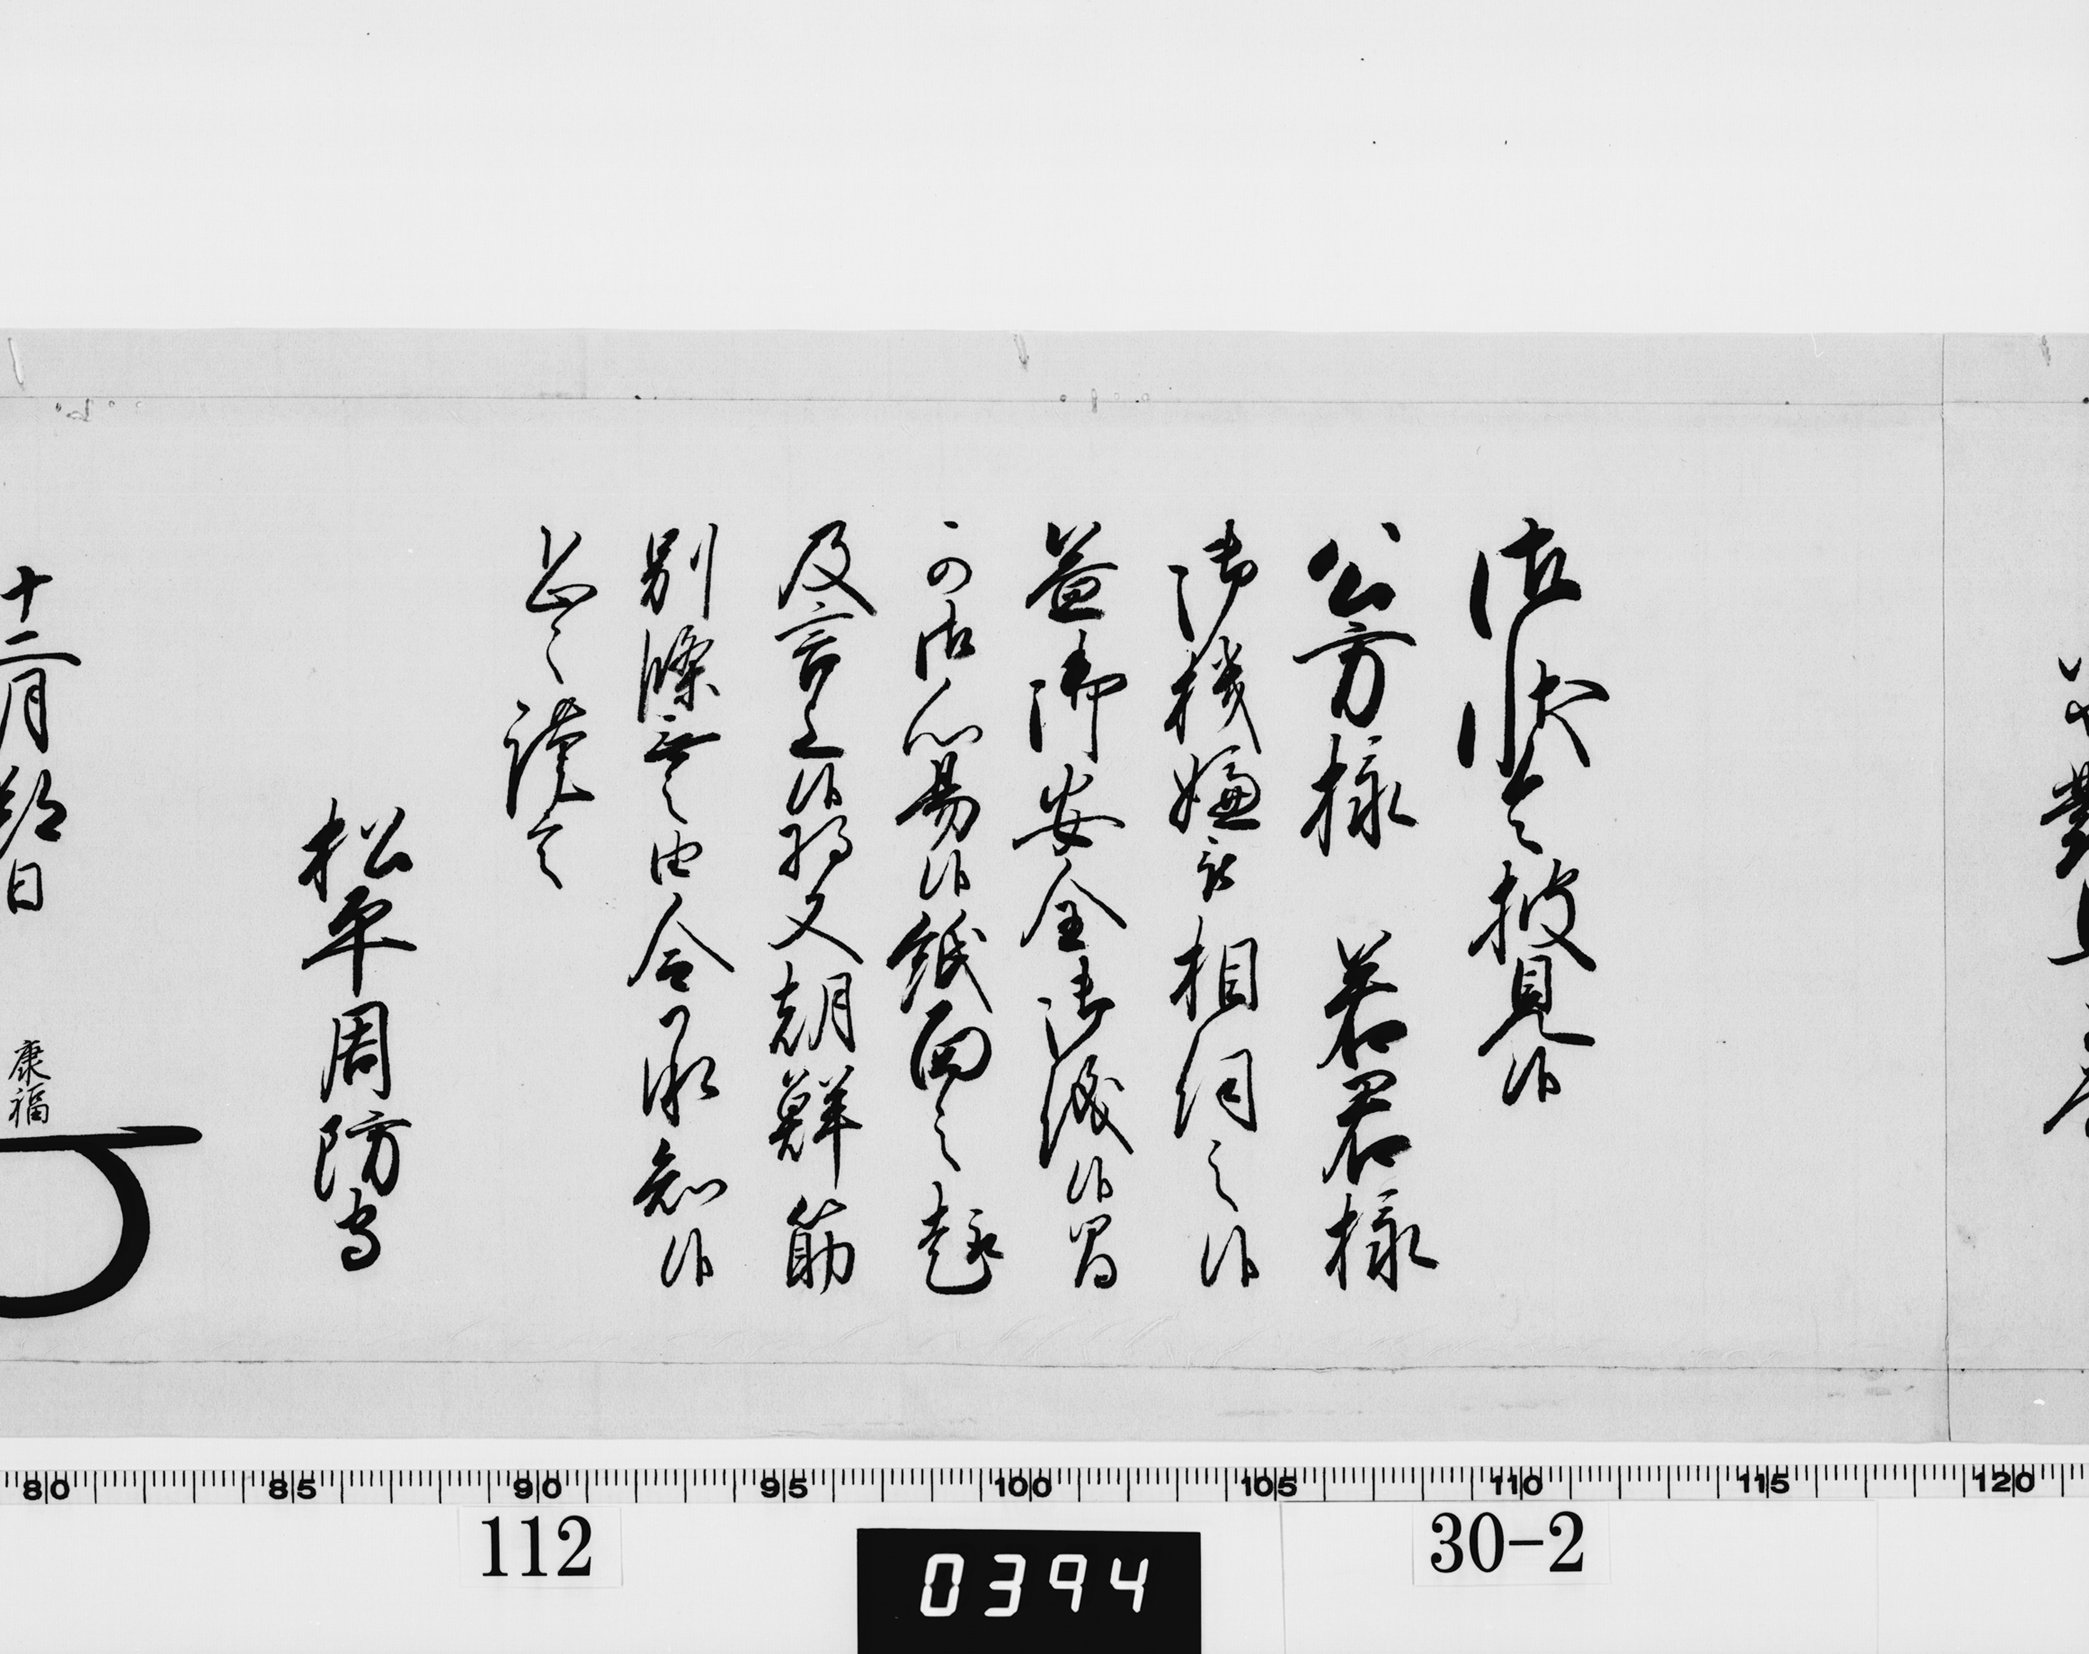 御状令披見候
公方様　若君様
御機嫌被相伺之候
益御安全御儀候間
可御心易候紙面之趣
及言上候将又朝鮮筋
別條無之由令承知候
恐々謹言
松平周防守
十二月朔日
康福
80 85 90 95 100 105 110 115 120
112
0394
30-2